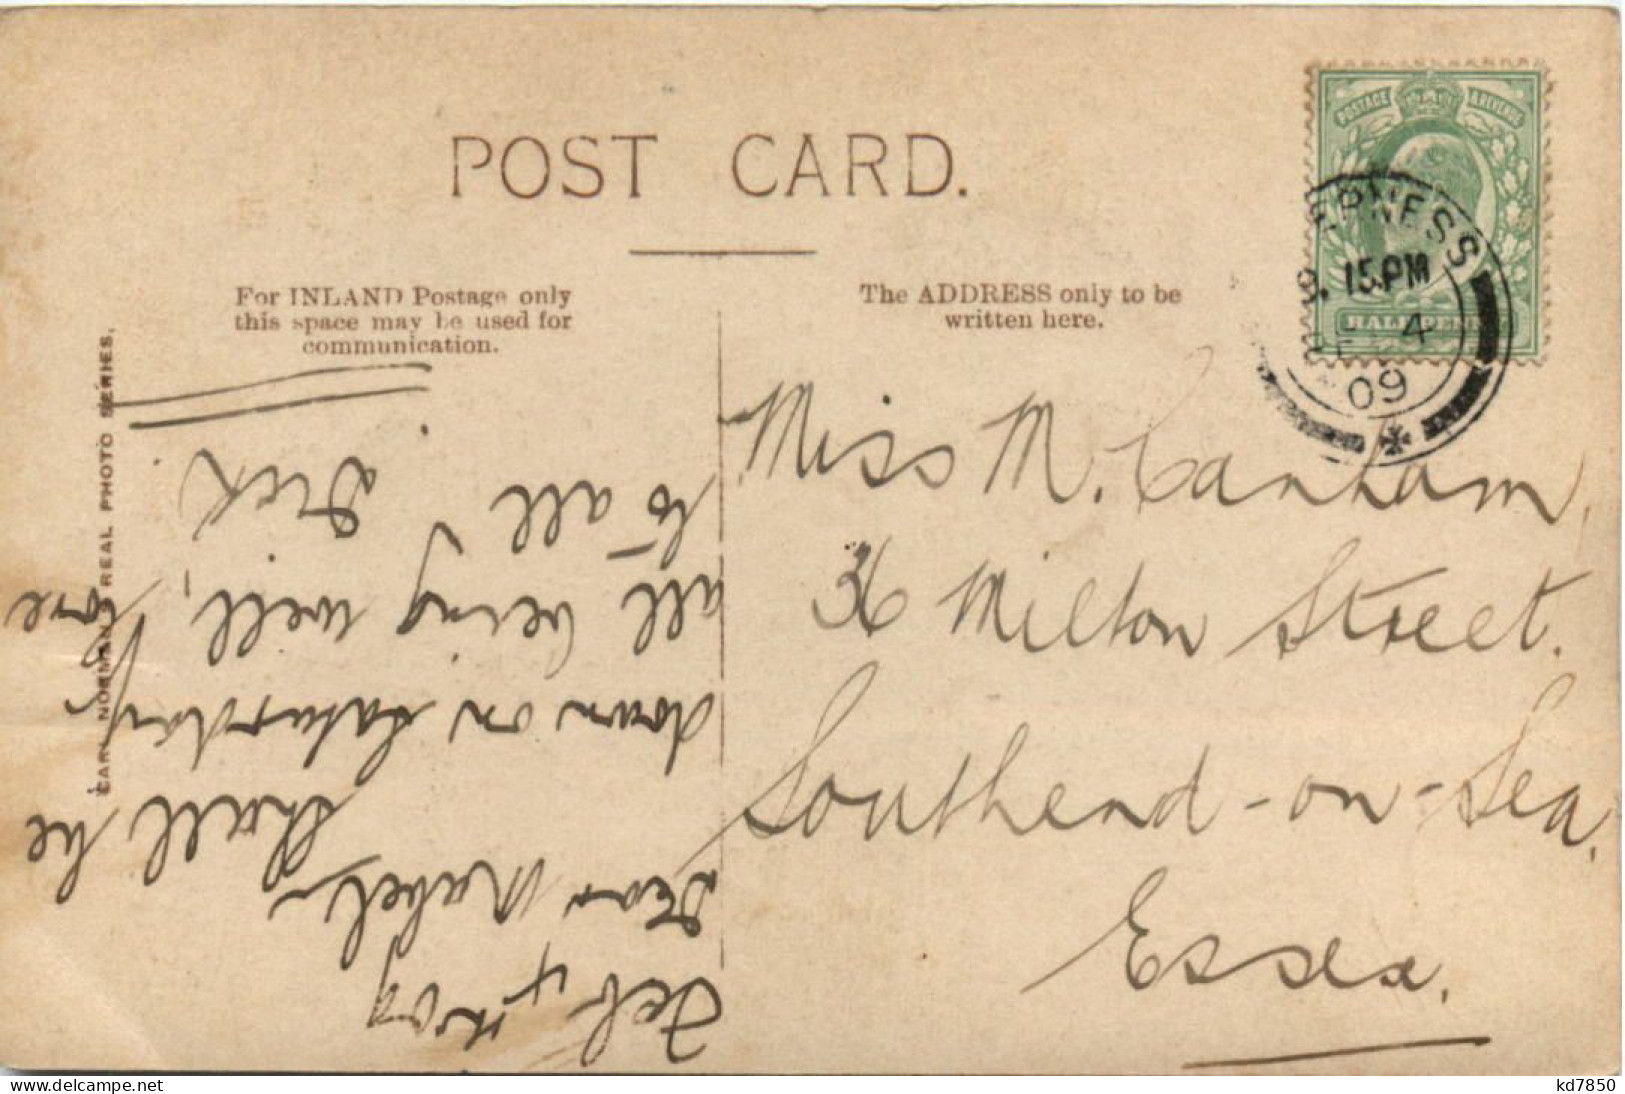 POST CARD.
For INLAND Postage only
this space may be used for
communication.
The ADDRESS only to be
written here.
POSTAGE & REVENUE
HALFPENNY
ERNESS
9.15.PM
FE 4
09
CARL NORMAN'S REAL PHOTO SERIES.
Miss M. Canham,
36 Milton Street.
Southend-on-Sea,
Essex.
Feb 4th 09
Dear Mabel
shall be
down on Saturday
all being well, love
to all
Dick
delcampe.net
kd7850